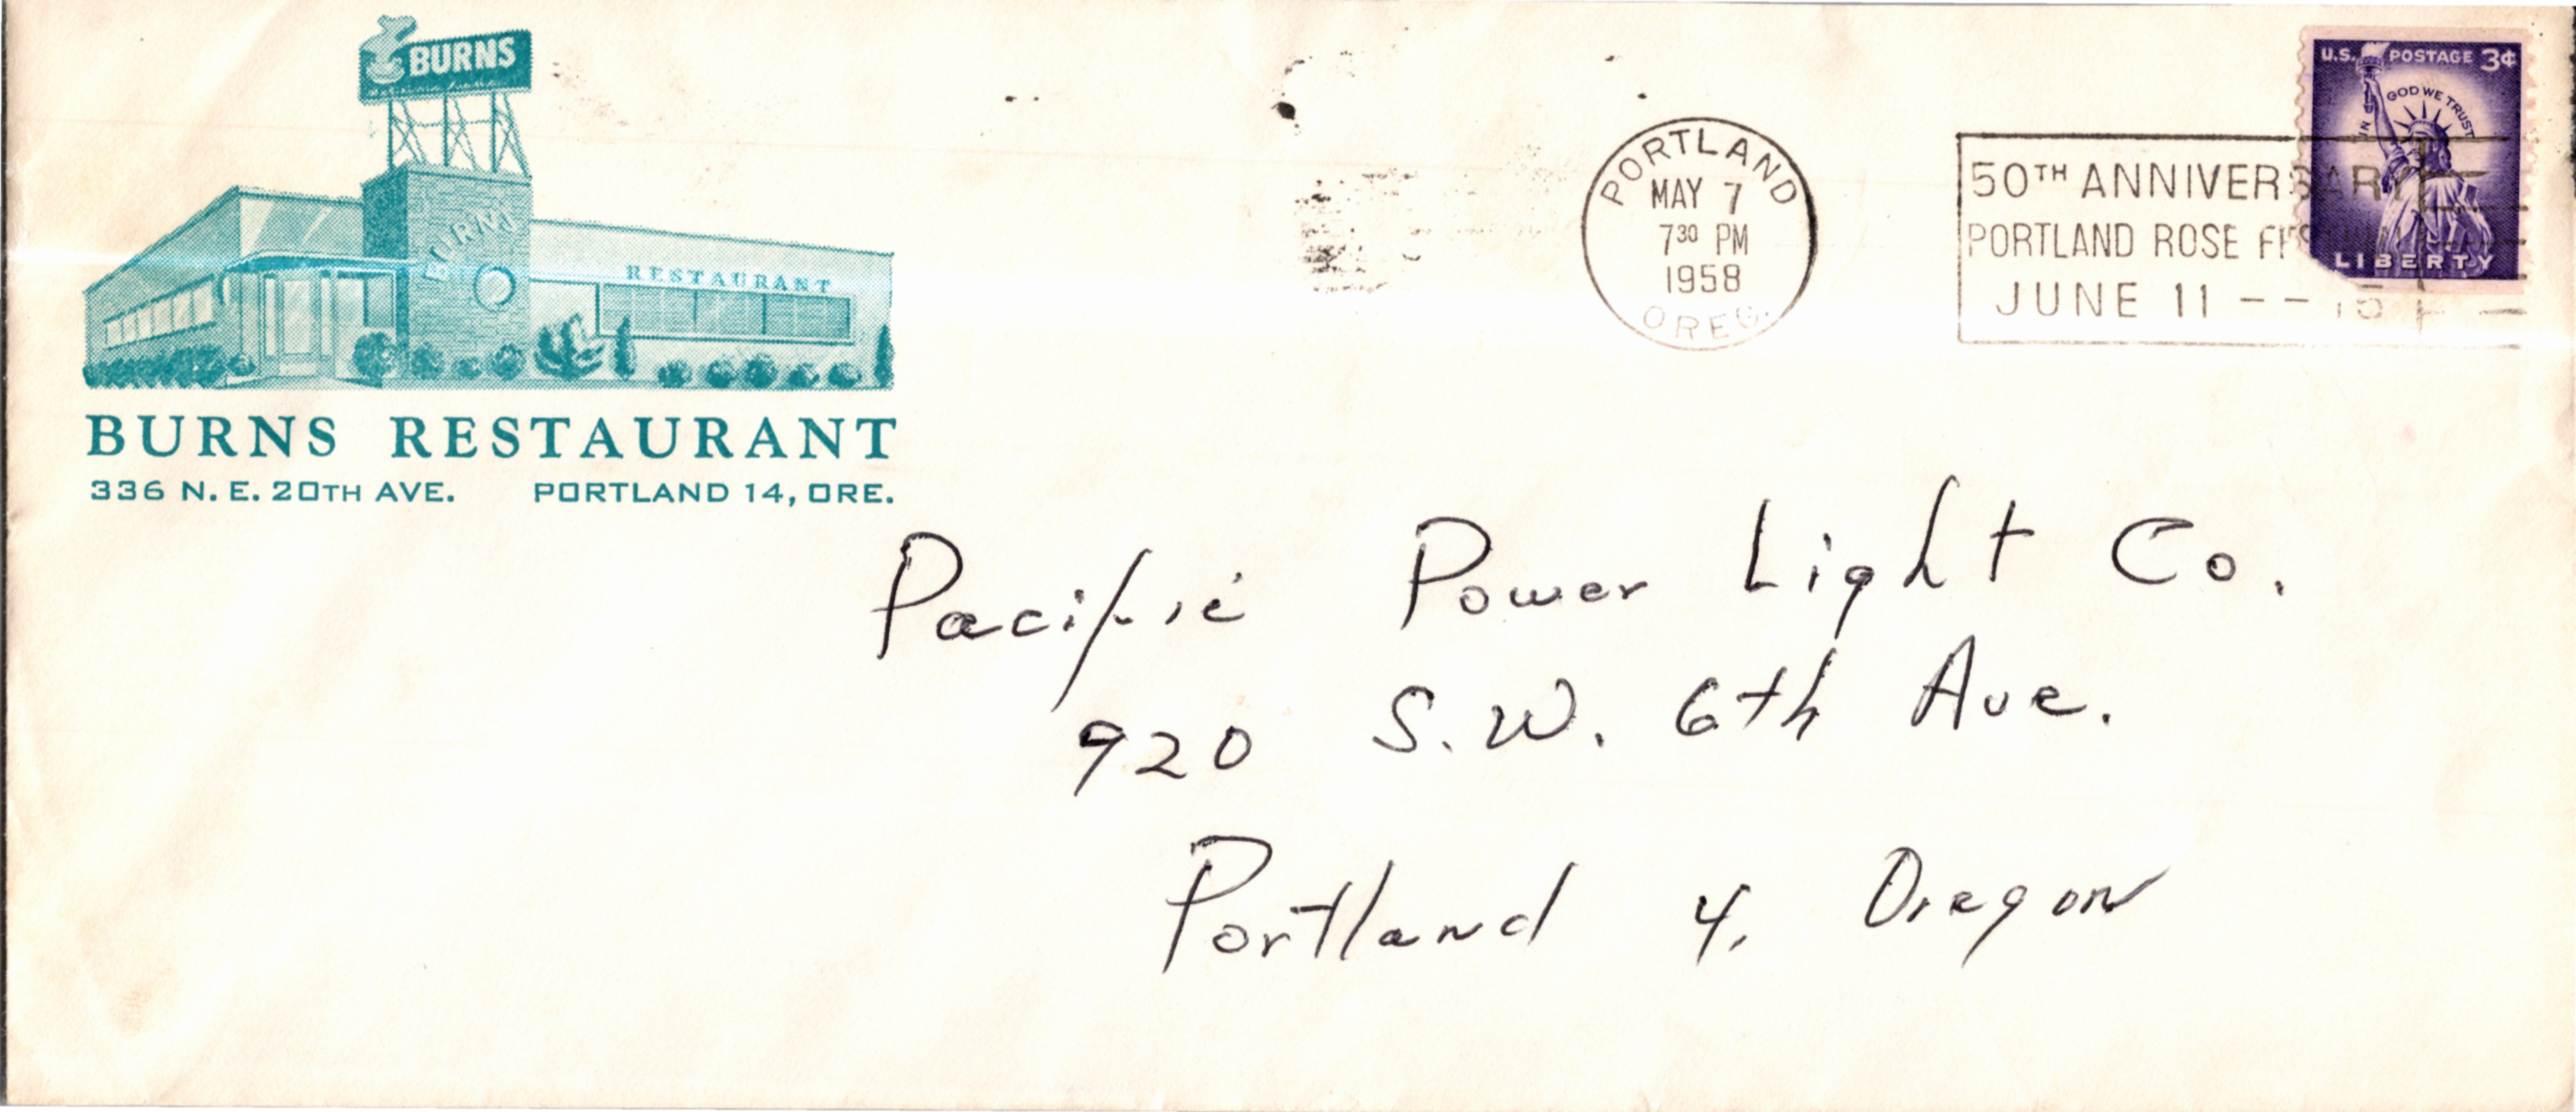 BURNS
BURNS
RESTAURANT
BURNS RESTAURANT
336 N. E. 20TH AVE. PORTLAND 14, ORE.
PORTLAND
MAY 7
7 30 PM
1958
OREG.
50TH ANNIVERSARY
PORTLAND ROSE
JUNE 11 -- 15
U.S. POSTAGE 3¢
IN GOD WE TRUST
LIBERTY
Pacific Power Light Co.
920 S.W. 6th Ave.
Portland 4, Oregon